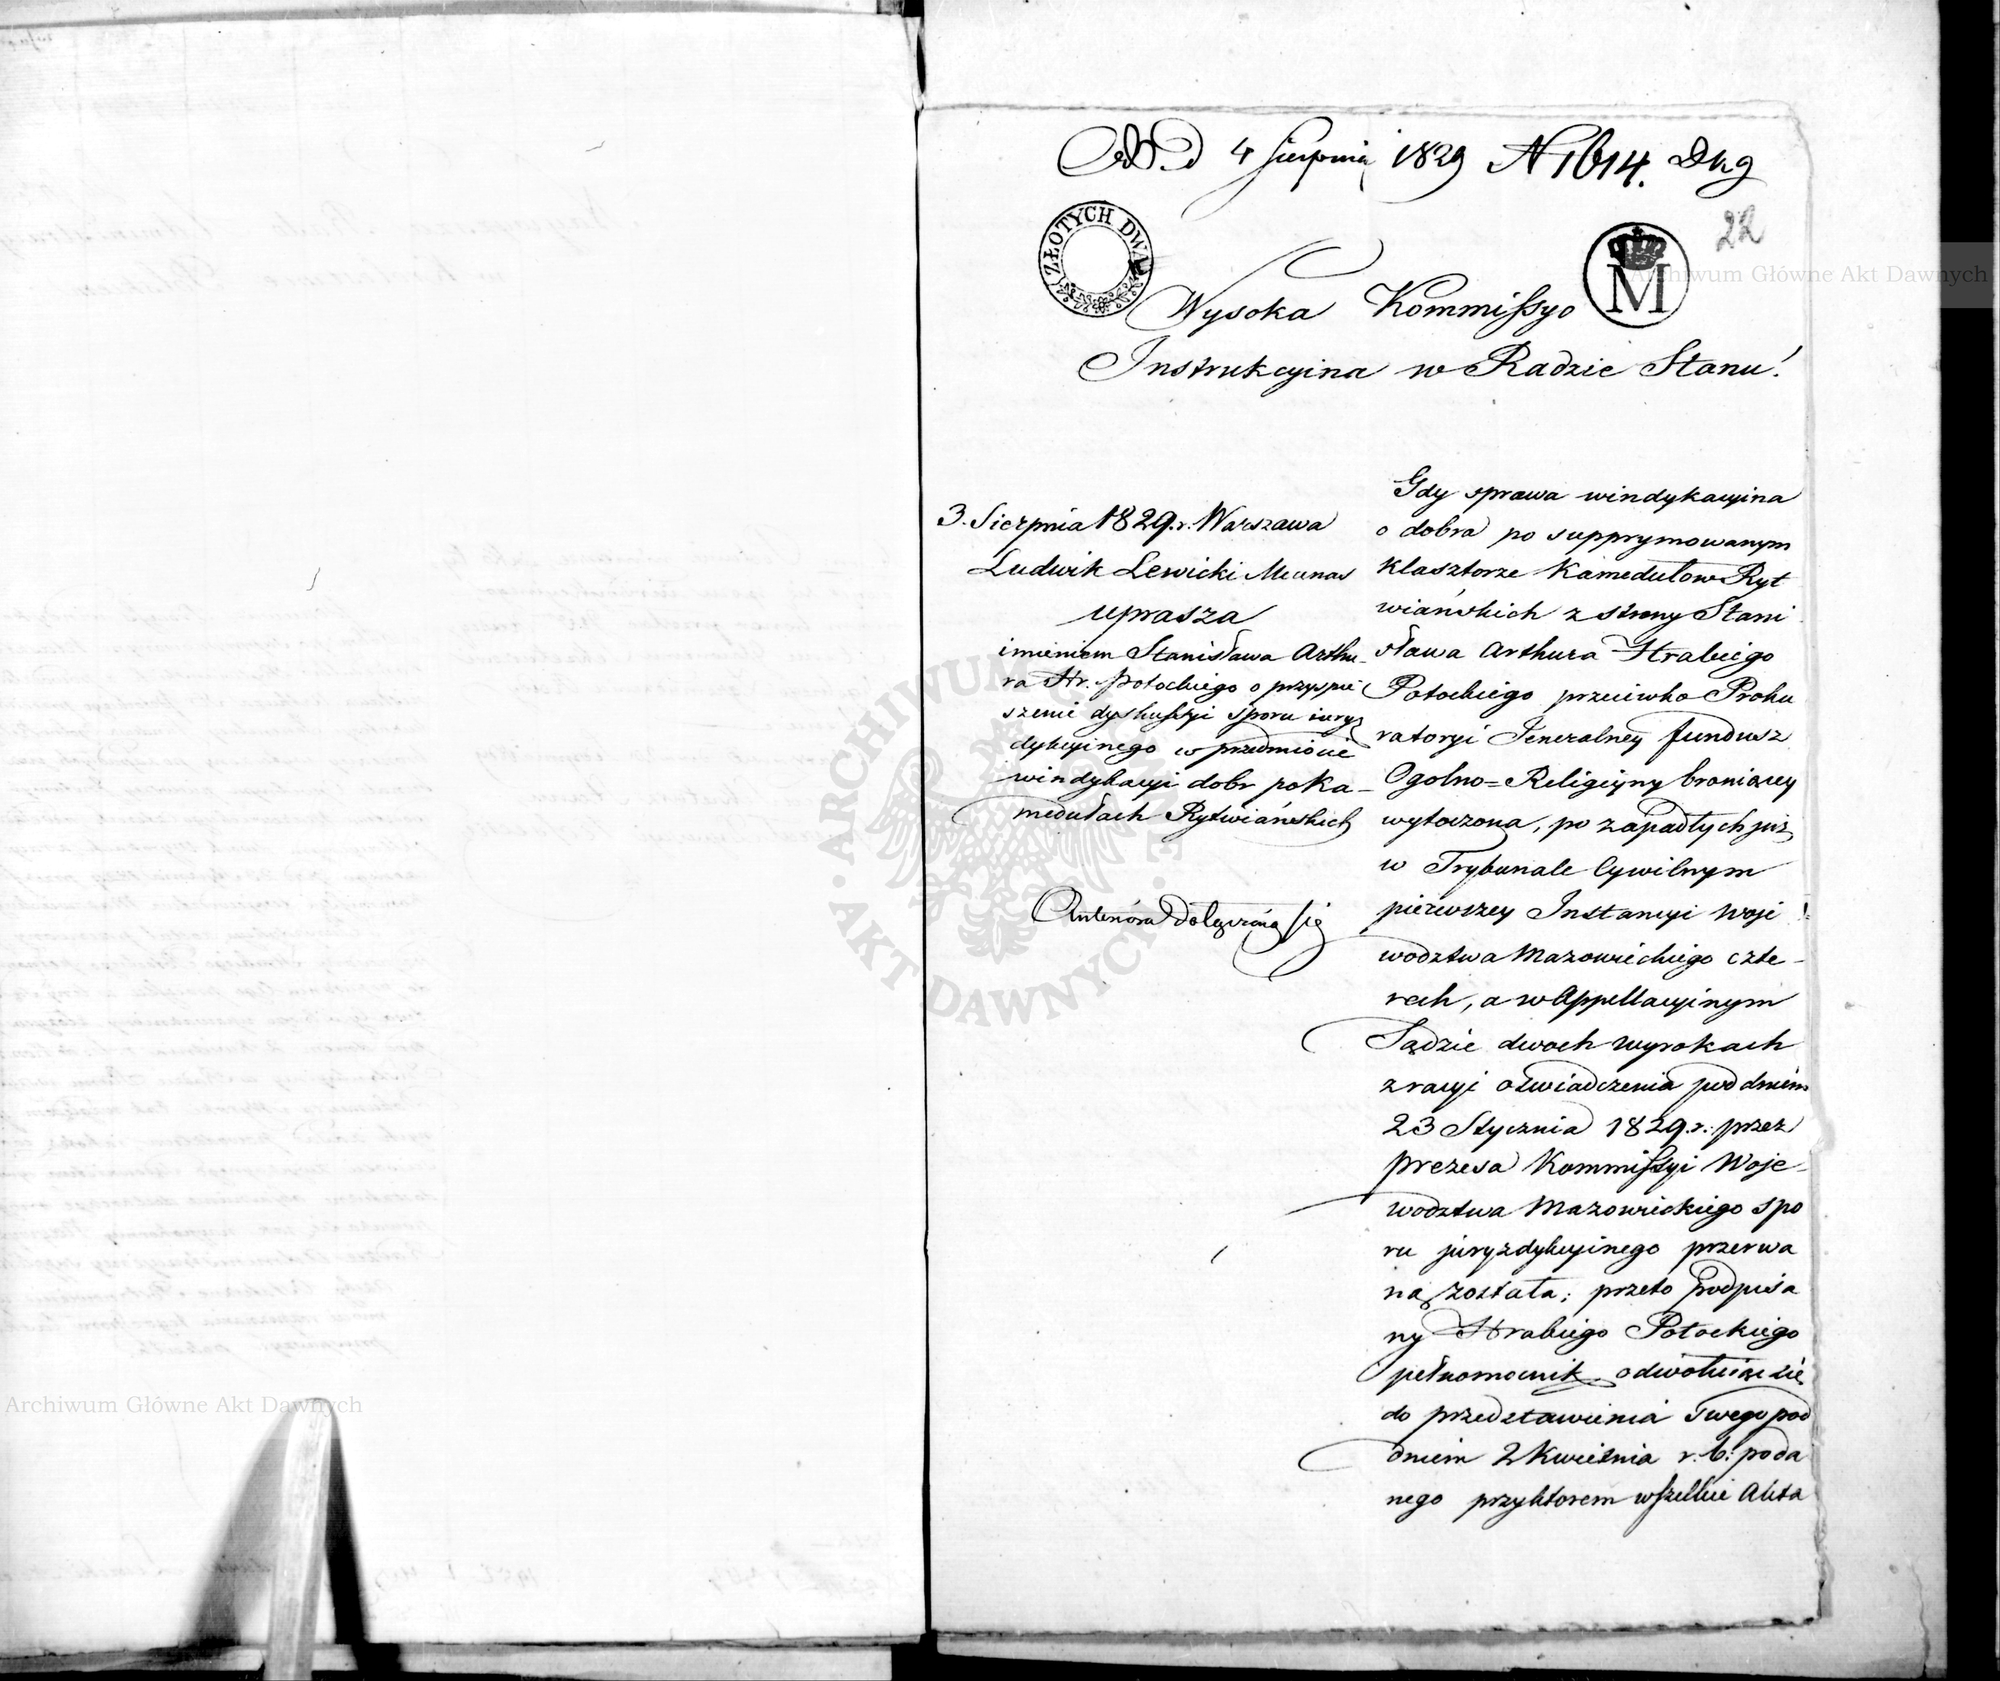 d 4 Sierpnia 1829 N 1614. Dkg
ZŁOTYCH DWA
M
22
Wysoka Kommissyo
Instrukcyina w Radzie Stanu!
3. Sierpnia 1829. r. Warszawa
Ludwik Lewicki Mecenas
uprasza
imieniem Stanisława Arthu-
ra Hr. Potockiego o przyspie
szenie dyskussyi sporu iurys
dykcyinego w przedmiocie
windykacyi dobr po Ka-
medułach Rytwiańskich
dołączaią się
Gdy sprawa windykacyina
o dobra po supprymowanym
klasztorze Kamedułow Ryt
wiańskich z strony Stani
sława Arthura Hrabiego
Potockiego przeciwko Proku
ratoryi Jeneralney fundusz
Ogolno=Religiyny broniącey
wytoczona, po zapadłych już
w Trybunale Cywilnym
pierwszey Instancyi Woje
wodztwa Mazowieckiego czte-
rech, a w Appellacyinym
Sądzie dwoch wyrokach
z racyi oświadczenia pod dniem
23 Stycznia 1829. r. przez
Prezesa Kommissyi Woje-
wodztwa Mazowieckiego spo
ru juryzdykcyinego przerwa
ną została; przeto podpisa
ny Hrabiego Potockiego
pełnomocnik odwołuiąc się
do przedstawienia swego pod
dniem 2 Kwietnia r. b. poda
nego przyktorem wszelkie Akta
Archiwum Główne Akt Dawnych
Archiwum Główne Akt Dawnych
ARCHIWUM GŁÓWNE AKT DAWNYCH